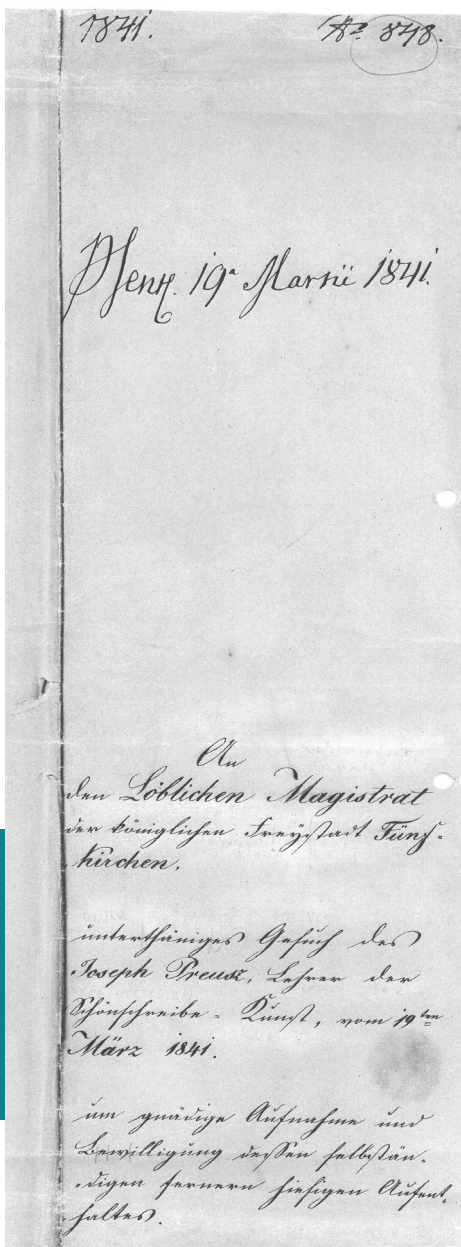 1841.
No 848.
Psent. 19a Martii 1841.
An
den Löblichen Magistrat
der königlichen Freystadt Fünf-
kirchen.
unterthäniges Gesuch des
Joseph Preusz, Lehrer der
Schönschreibe-Kunst, vom 19ten
März 1841.
um gnädige Aufnahme und
Bewilligung dessen selbstän-
-digen fernern hiesigen Aufent-
haltes.